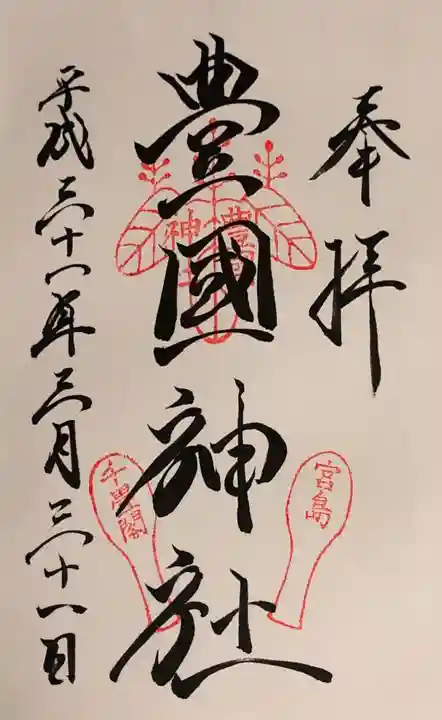 奉拝
豊國神社
平成三十一年三月三十一日
豊國神社
宮島
千畳閣